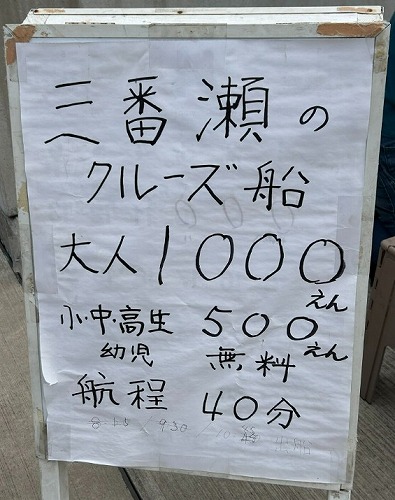 三番瀬の
クルーズ船
大人 1000えん
小・中・高生 500えん
幼児 無料
航程 40分